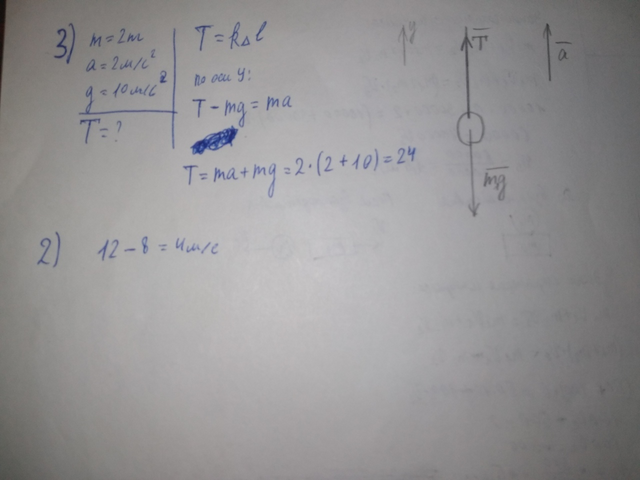 3) m = 2m
a = 2м/с²
g = 10м/с²
T = ?
T = kΔl
по оси y:
T - mg = ma
T = ma + mg = 2·(2 + 10) = 24
y
T
a
mg
2) 12 - 8 = 4м/с